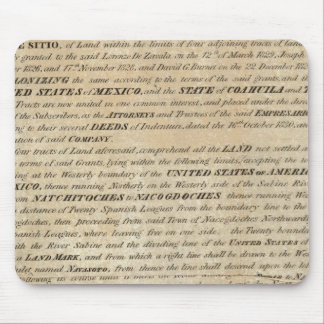 E SITIO, of Land within the limits of four adjoining tracts of land
y granted to the said Lorenzo De Zavala on the 12th of March 1829, Joseph
1826, and 17th November 1828, and David G. Burnet on the 22 December 182
LONIZING the same according to the terms of the said grants, and th
TED STATES of MEXICO, and the STATE of COAHUILA and T
Tracts are now united in one common interest, and placed under the di
of the Subscribers, as the ATTORNEYS and Trustees of the said EMPRESARI
g to their several DEEDS of Indenture, dated the 16th October 1830, an
ation of said COMPANY.
our tracts of Land aforesaid, comprehend all the LAND not settled a
terms of said Grants, lying within the following limits, excepting the
ng at the Westerly boundary of the UNITED STATES of AMERIC
XICO, thence running Northerly on the Westerly side of the Sabine Rive
from NATCHITOCHES to NACOGDOCHES thence running We
distance of Twenty Spanish Leagues from the boundary line to the
acogdoches, then proceeding from said Town of Nacogdoches Northward
panish Leagues, where leaving free on one side, the Twenty bounda
ith the River Sabine and the dividing line of the UNITED STATES of
LAND MARK, and from which a right line shall be drawn to the Wes
ulet named NAVASOTO, from thence the line shall descend upon the lef
following its course until it meets the